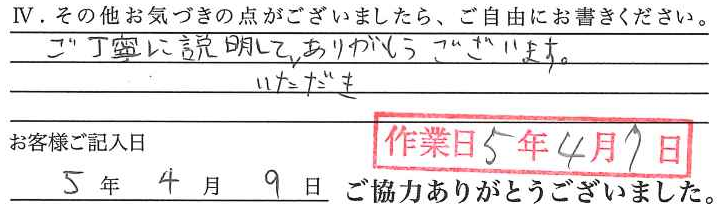 Ⅳ．その他お気づきの点がございましたら、ご自由にお書きください。
ご丁寧に説明して、ありがとうございます。
いただき
お客様ご記入日
作業日5年4月7日
5年4月9日
ご協力ありがとうございました。